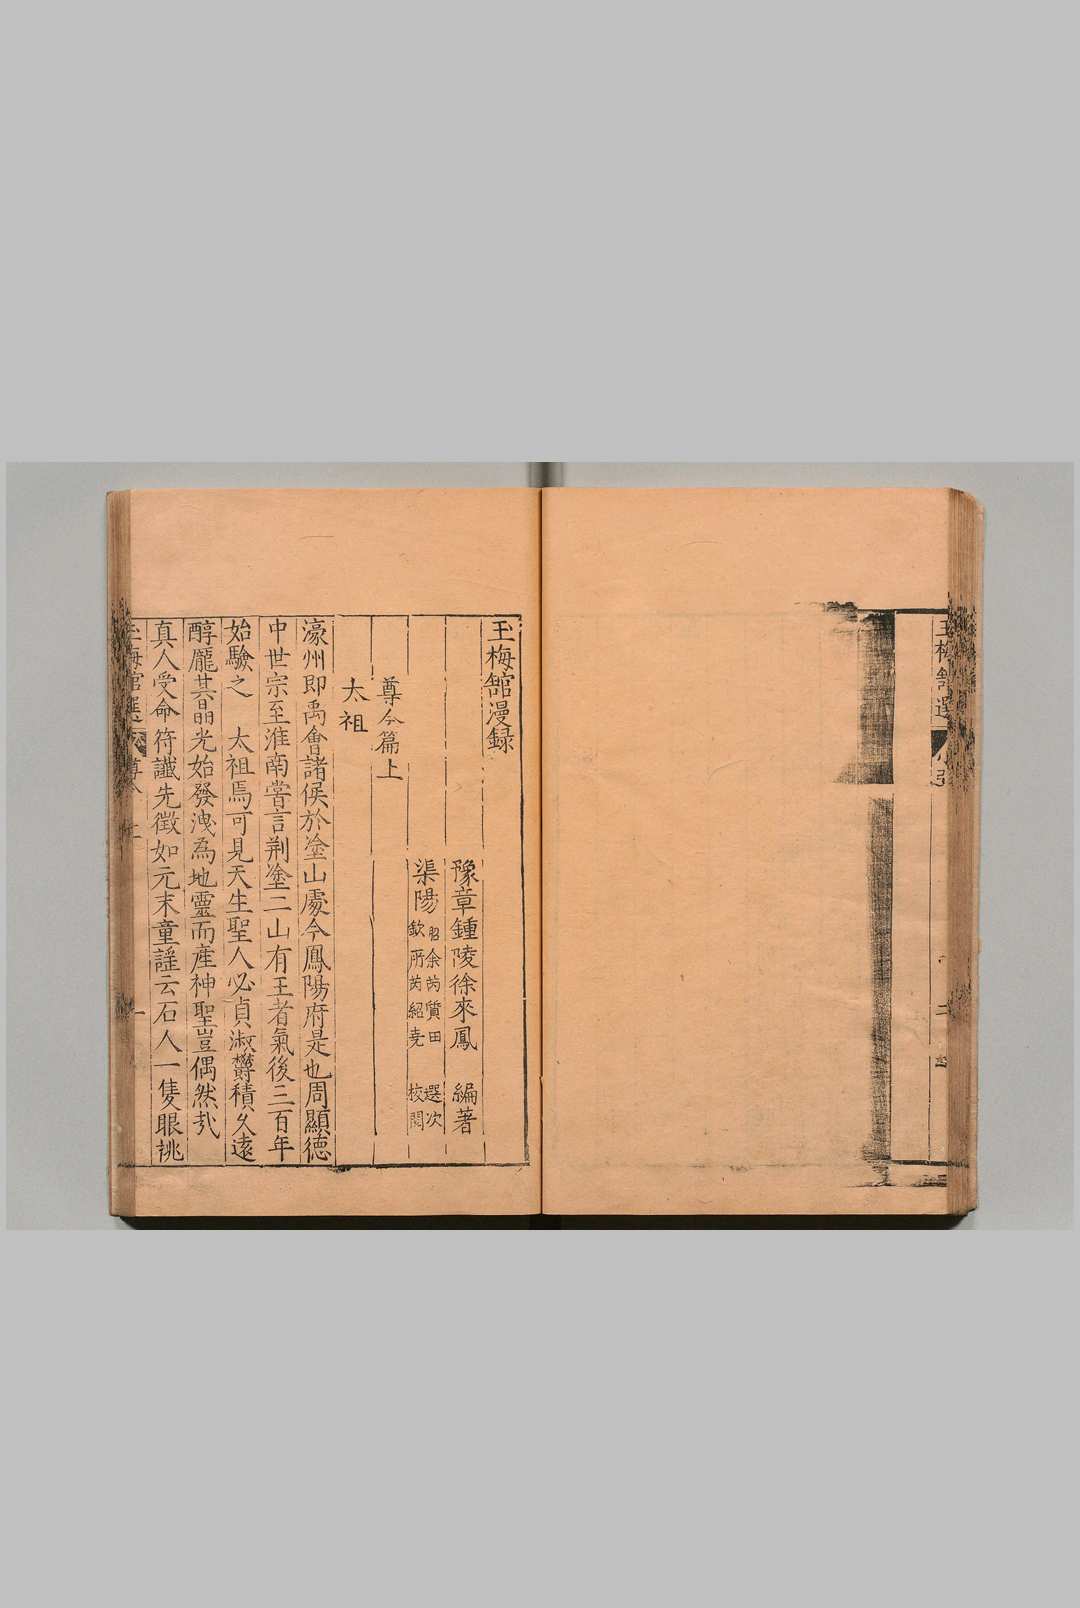 玉梅館漫録
豫章鍾陵徐來鳳　編著
渠陽
余芮質田　選次
欽所芮紹堯　校閱
尊今篇上
太祖
濠州即禹會諸侯於塗山處今鳳陽府是也周顯德
中世宗至淮南嘗言荆塗二山有王者氣後三百年
始驗之　太祖焉可見天生聖人必貞淑欝積久遠
醇龐其晶光始發洩為地靈而産神聖豈偶然㢤
真人受命符讖先徵如元末童謡云石人一隻眼挑